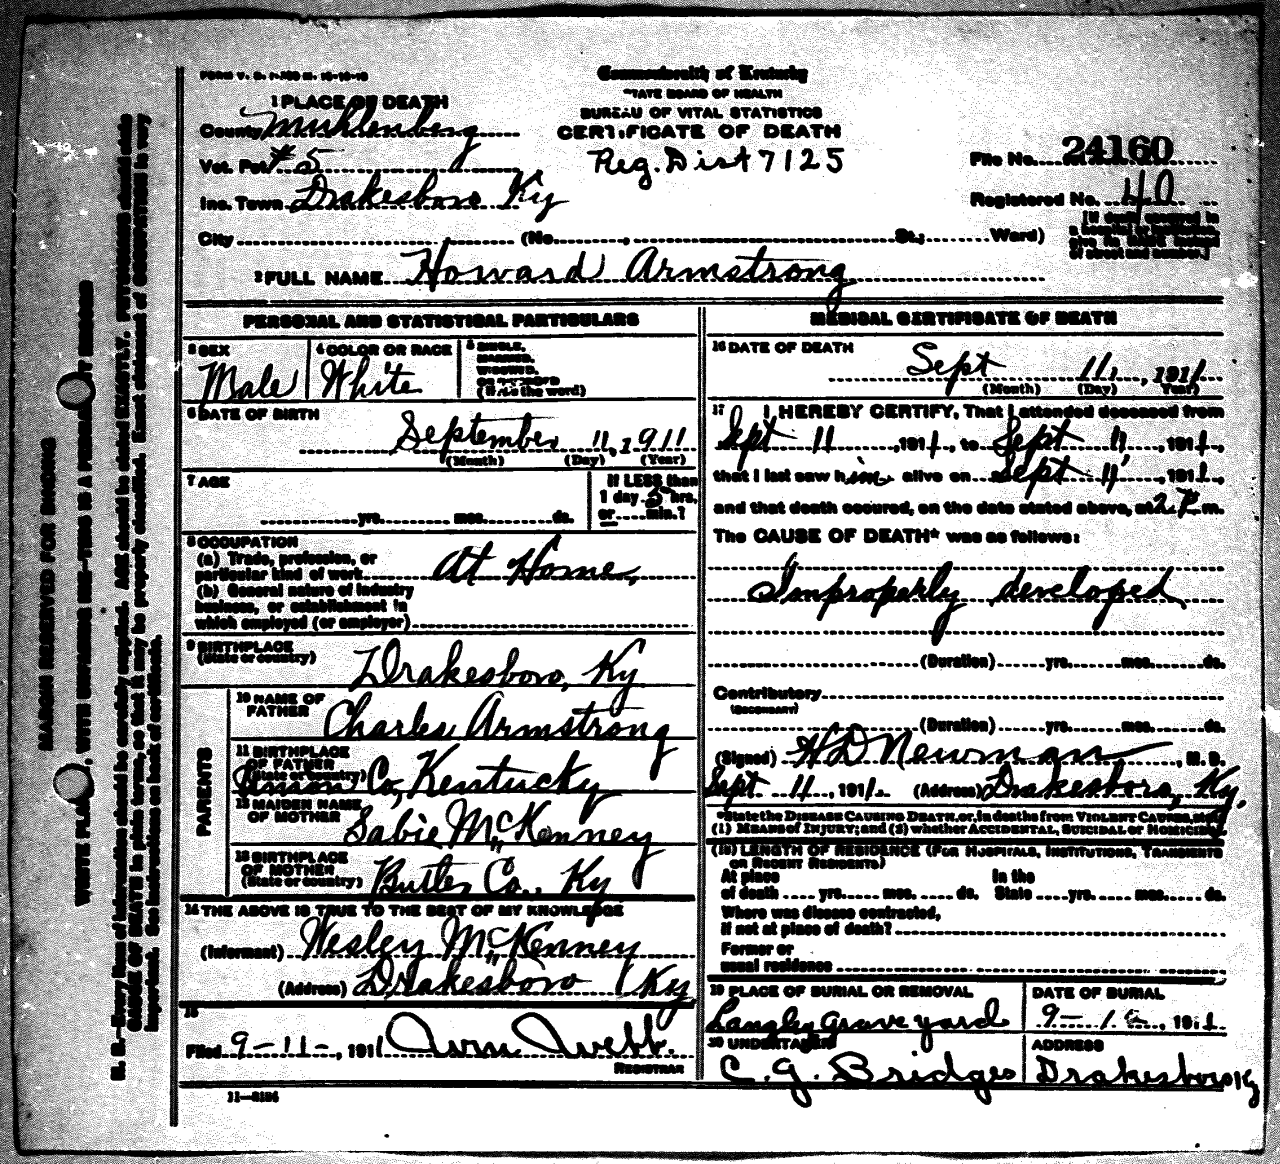 FORM V. S.
Commonwealth of Kentucky
STATE BOARD OF HEALTH
BUREAU OF VITAL STATISTICS
CERTIFICATE OF DEATH
Reg. Dist 7125
1 PLACE OF DEATH
County Muhlenberg
Vot. Pct #5
Inc. Town Drakesboro Ky
City (No. , St.; Ward)
File No. 24160
Registered No. 40
[If death occurred in a hospital or institution, give its NAME instead of street and number.]
2 FULL NAME Howard Armstrong
PERSONAL AND STATISTICAL PARTICULARS
3 SEX
Male
4 COLOR OR RACE
White
5 SINGLE,
MARRIED,
WIDOWED,
OR DIVORCED
(Write the word)
6 DATE OF BIRTH
September 11, 1911
(Month) (Day) (Year)
7 AGE
yrs. mos. ds.
If LESS than
1 day 5 hrs.
or min.?
8 OCCUPATION
(a) Trade, profession, or
particular kind of work At Home,
(b) General nature of industry
business, or establishment in
which employed (or employer)
9 BIRTHPLACE
(State or country) Drakesboro, Ky
PARENTS
10 NAME OF
FATHER Charles Armstrong
11 BIRTHPLACE
OF FATHER
(State or country) Co, Kentucky
12 MAIDEN NAME
OF MOTHER Sabie McKenney
13 BIRTHPLACE
OF MOTHER
(State or country) Butler Co., Ky
14 THE ABOVE IS TRUE TO THE BEST OF MY KNOWLEDGE
(Informant) Wesley McKenney
(Address) Drakesboro Ky
15
Filed 9-11-, 1911 Wm Webb.
REGISTRAR
11-3184
MEDICAL CERTIFICATE OF DEATH
16 DATE OF DEATH
Sept 11, , 1911
(Month) (Day) (Year)
17 I HEREBY CERTIFY, That I attended deceased from
Sept 11 , 1911, to Sept 11 , 1911,
that I last saw him alive on Sept 11 , 1911,
and that death occured, on the date stated above, at 2 P. m.
The CAUSE OF DEATH* was as follows:
Improperly developed
(Duration) yrs. mos. ds.
Contributory
(SECONDARY)
(Duration) yrs. mos. ds.
(Signed) H D Newman , M. D.
Sept 11 , 1911. (Address) Drakesboro, Ky.
*State the DISEASE CAUSING DEATH, or, in deaths from VIOLENT CAUSES, state
(1) MEANS OF INJURY; and (2) whether ACCIDENTAL, SUICIDAL or HOMICIDAL.
(18) LENGTH OF RESIDENCE (FOR HOSPITALS, INSTITUTIONS, TRANSIENTS
OR RECENT RESIDENTS)
At place
of death yrs. mos. ds.
In the
State yrs. mos. ds.
Where was disease contracted,
if not at place of death?
Former or
usual residence
19 PLACE OF BURIAL OR REMOVAL
Langley Grave yard
DATE OF BURIAL
9- , 1911
20 UNDERTAKER
C. G. Bridges
ADDRESS
Drakesboro Ky
MARGIN RESERVED FOR BINDING
WRITE PLAINLY, WITH UNFADING INK—THIS IS A PERMANENT RECORD
N. B.—Every item of information should be carefully supplied. AGE should be stated EXACTLY. PHYSICIANS should state
CAUSE OF DEATH in plain terms, so that it may be properly classified. Exact statement of OCCUPATION is very
important. See instructions on back of certificate.